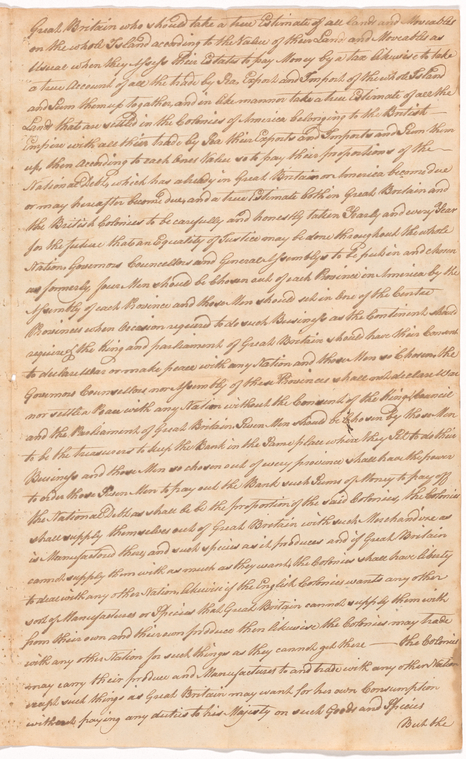 Great Britain who should take a true Estimate of all Lands and Moveables
on the whole Island according to the Value of their Land and Moveables as
Usual when they Assess their Estates to pay Money by a tax likewise to take
a true Account of all the trade by Sea Export and Import of the whole Island
and Sum them up together, and in like manner take a true Estimate of all the
Lands that are settled in the Colonies of America belonging to the British
Empire with all their trade by Sea their Exports and Imports and Sum them
up, then According to each ones Value so to pay their proportions of the
National Debt, which has already in Great Britain or America become due
or may hereafter become due, and a true Estimate both in Great Britain and
the British Colonies to be carefully and honestly taken Yearly and every Year
for the future that an Equality of Justice may be done throughout the whole
Nation. Governors Councellors and General Assemblys to be put in and chosen
as formerly, four Men should be Chosen out of each Province in America by the
Assembly of each Province and those Men should set in One of the Center
Provinces when Occasion required to do such Business as the Continent should
require of the King and parliament of Great Britain should have their Consent
to declare War or make peace with any Nation and those Men so Chosen, the
Governors Councellors nor Assembly of these Provinces shall not declare War
nor settle a Peace with any Nation without the Consent of the King, Council
and the Parliament of Great Britain. Seven Men should be Chosen by those Men
to be the treasurers to keep the Bank in the Same place where they Set to do their
Business and those Men so chosen out of every province shall have the power
to order those Seven Men to pay out the Bank such Sums of Money to pay off
the National Debt as shall be the proportion of the said Colonies, the Colonies
shall supply themselves out of Great Britain with such Merchandize as
is Manufactored there, and such species as it produces and if Great Britain
cannot supply them with as much as they want, the Colonies shall have liberty
to deal with any other Nation, likewise if the English Colonies wants any other
sort of Manufactures or Species that Great Britain cannot supply them with
from their own and their own produce then likewise the Colonies may trade
with any other Nation for such things as they cannot get there — the Colonies
may carry their produce and Manufactures to and trade with any other Nation
except such things as Great Britain may want for her own Consumption
without paying any duties to his Majesty on such Goods and Species
But the